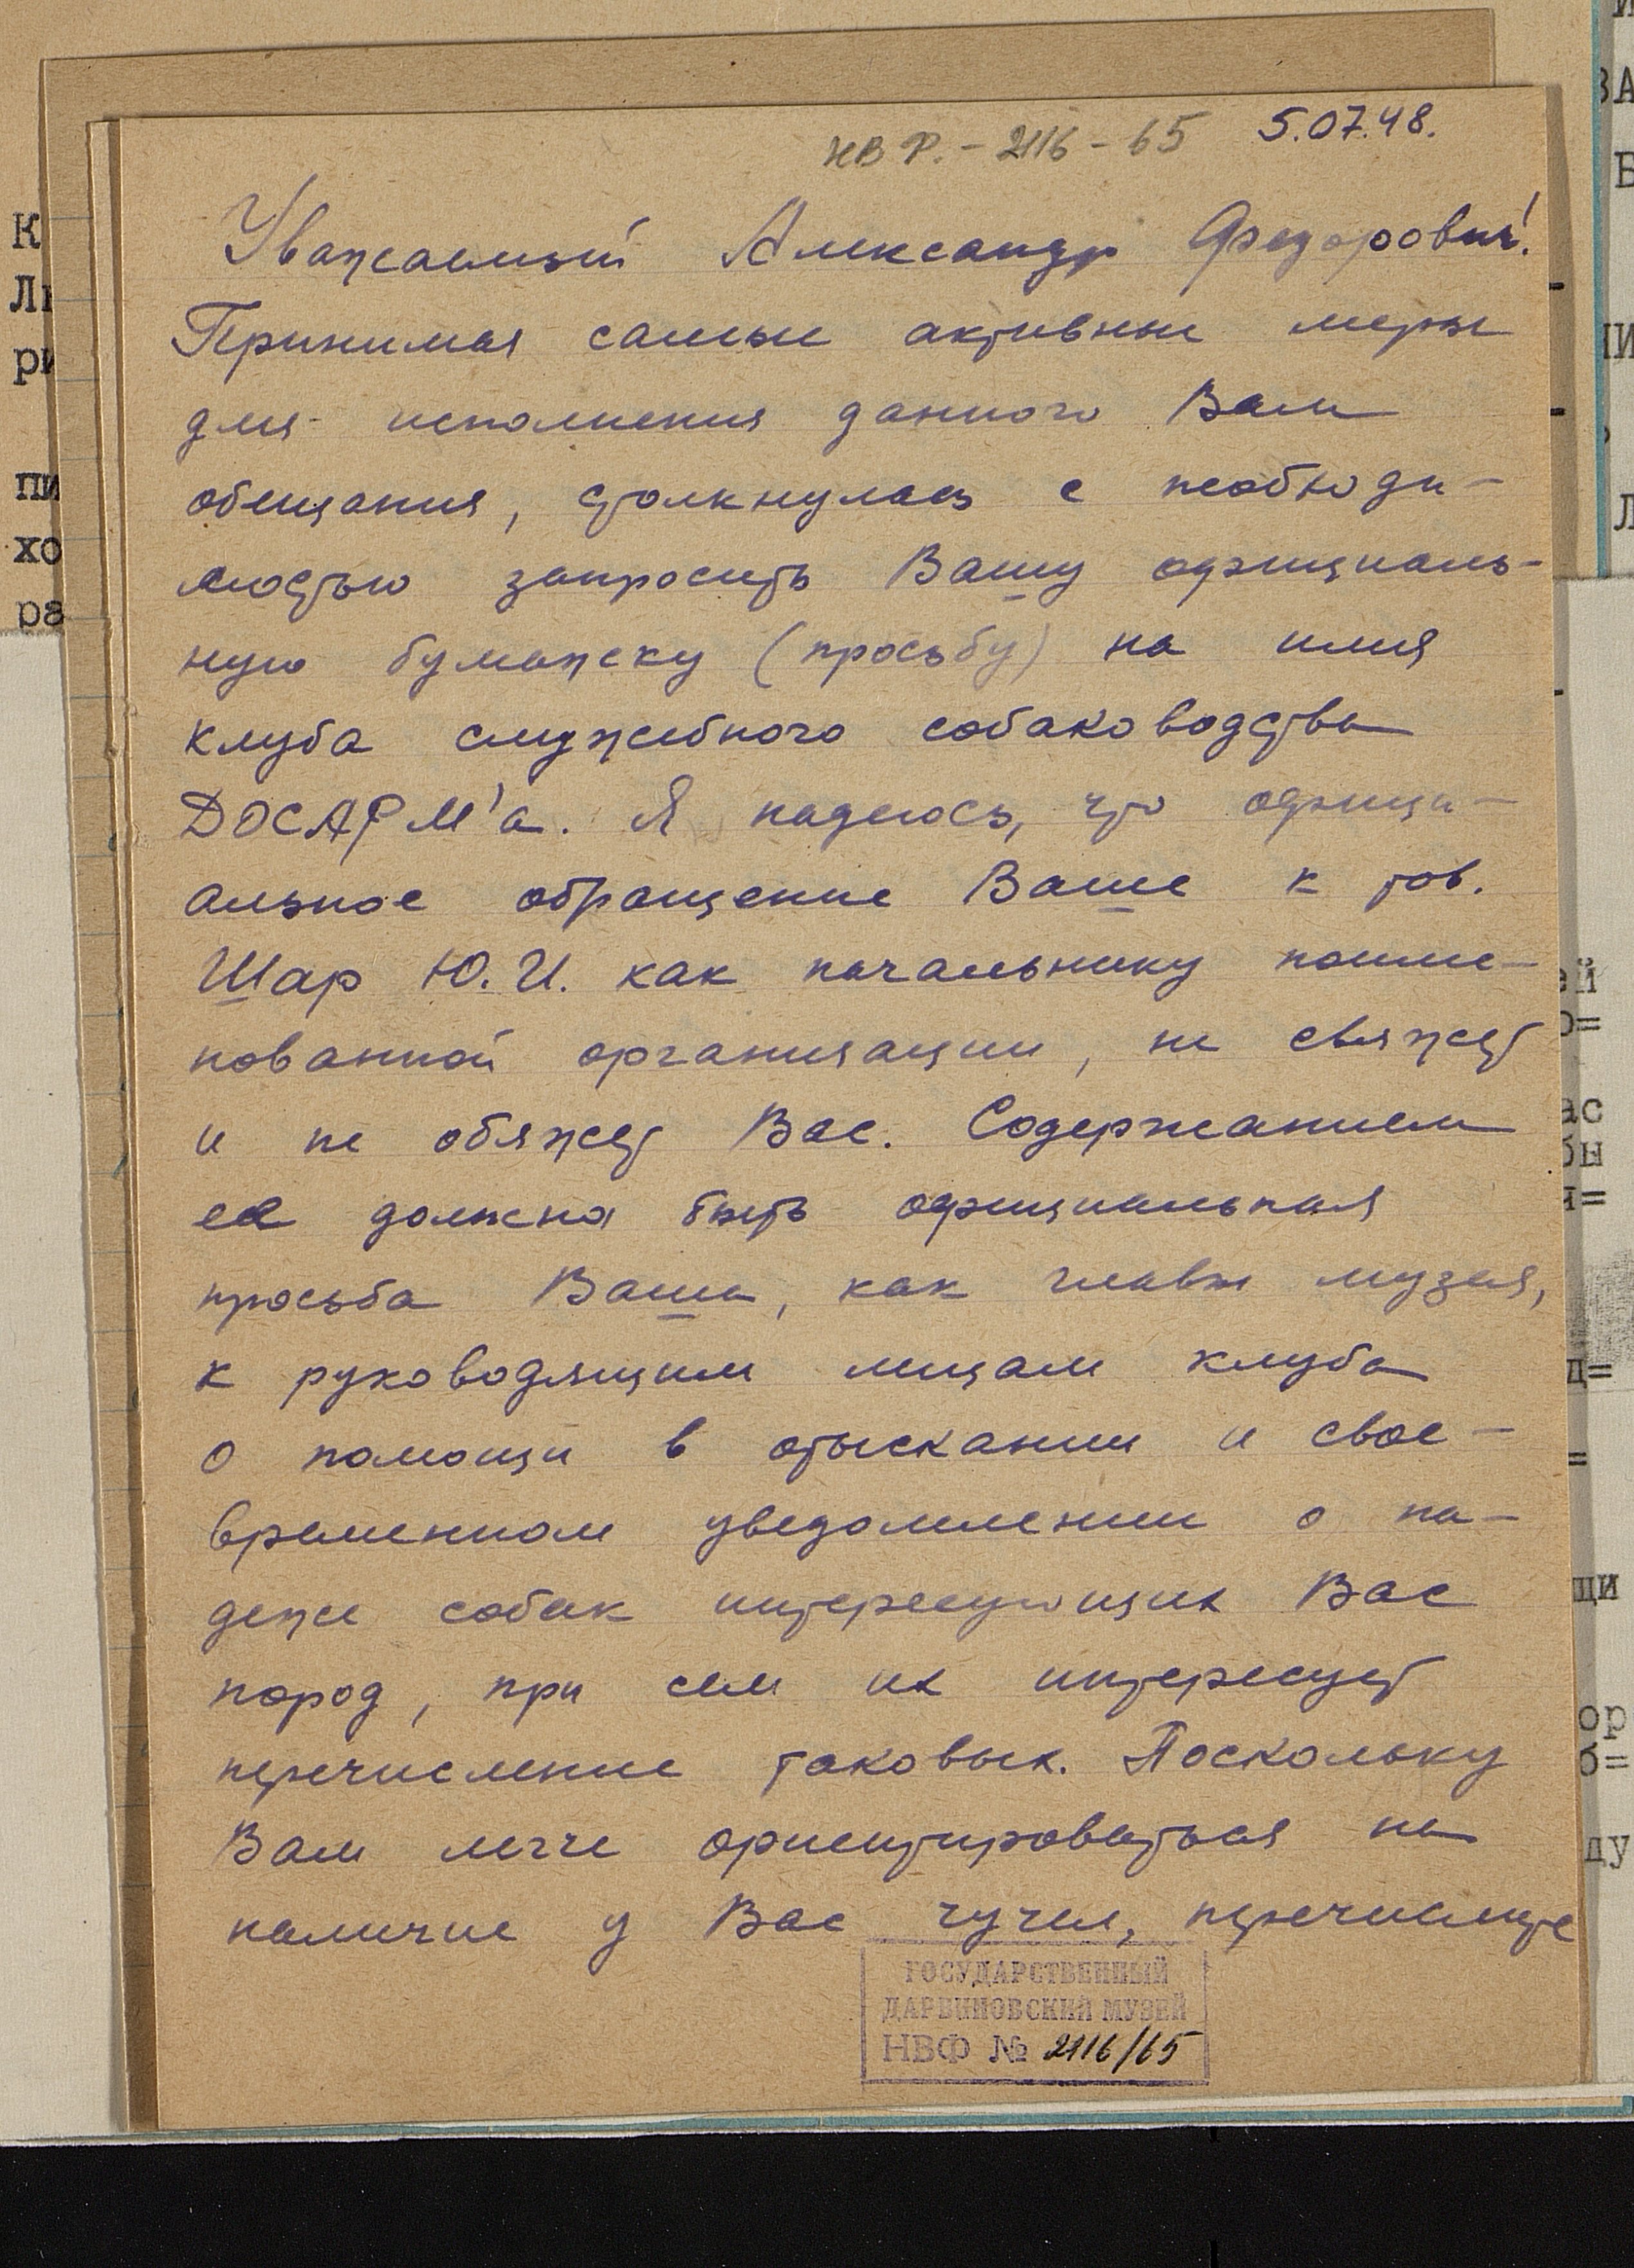 НВ Р. - 2116 - 65 5.07.48.
Уважаемый Александр Федорович!
Принимая самые активные меры
для исполнения данного Вам
обещания, столкнулась с необходи-
мостью запросить Вашу официаль-
ную бумажку (просьбу) на имя
клуба служебного собаководства
ДОСАРМ'а. Я надеюсь, что офици-
альное обращение Ваше к тов.
Шар Ю.И. как начальнику поиме-
нованной организации, не свяжет
и не обяжет Вас. Содержанием
ее должна быть официальная
просьба Ваша, как главы музея,
к руководящим лицам клуба
о помощи в отыскании и свое-
временном уведомлении о па-
деже собак интересующих Вас
пород, при сем их интересует
перечисление таковых. Поскольку
Вам легче ориентироваться на
наличие у Вас чучел, перечислите
ГОСУДАРСТВЕННЫЙ
ДАРВИНОВСКИЙ МУЗЕЙ
НВФ № 2116/65